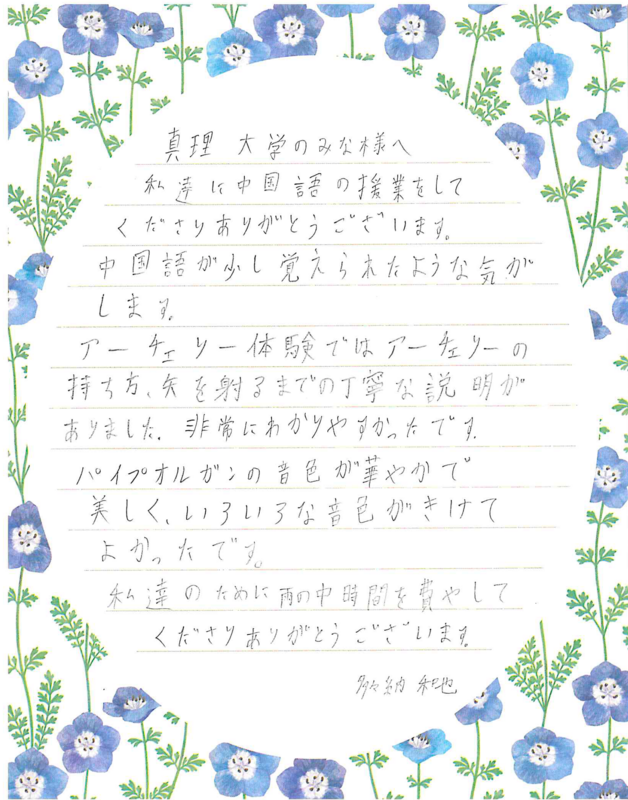 真理 大学のみな様へ
私達に中国語の援業をして
くださりありがとうございます。
中国語が少し覚えられたような気が
します。
アーチェリー体験ではアーチェリーの
持ち方、矢を射るまでの丁寧な説明が
ありました。非常にわかりやすかったです。
パイプオルガンの音色が華やかで
美しく、いろいろな音色がきけて
よかったです。
私達のために雨の中時間を費やして
くださりありがとうございます。
多々納 和也